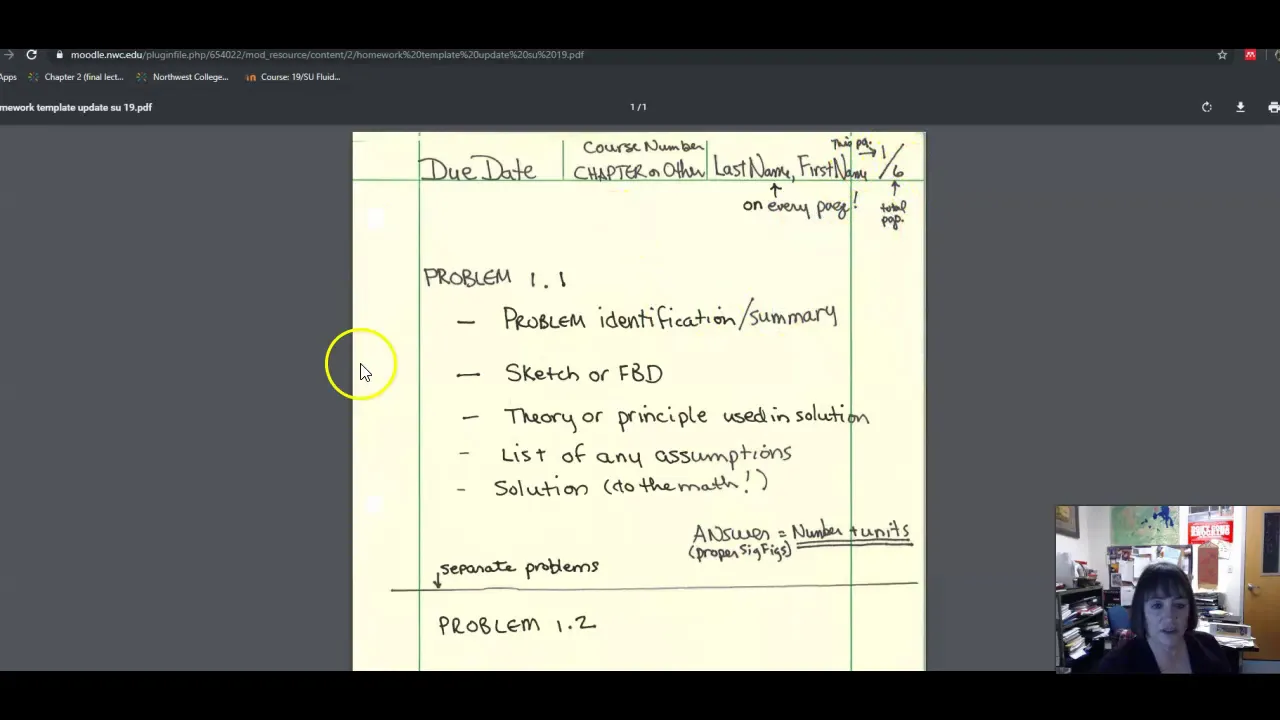 moodle.nwc.edu/pluginfile.php/654022/mod_resource/content/2/homework%20template%20update%20su%2019.pdf
Apps Chapter 2 (final lect... Northwest College... Course: 19/SU Fluid...
mework template update su 19.pdf
1 / 1
This pg.
Course Number
Due Date CHAPTER or Other Last Name, First Name 1/6
on every page! total
pgs.
PROBLEM 1.1
- PROBLEM identification/summary
- Sketch or FBD
- Theory or principle used in solution
- List of any assumptions
- Solution (to the math!)
ANSWER = Number + units
(proper Sig Figs)
separate problems
PROBLEM 1.2